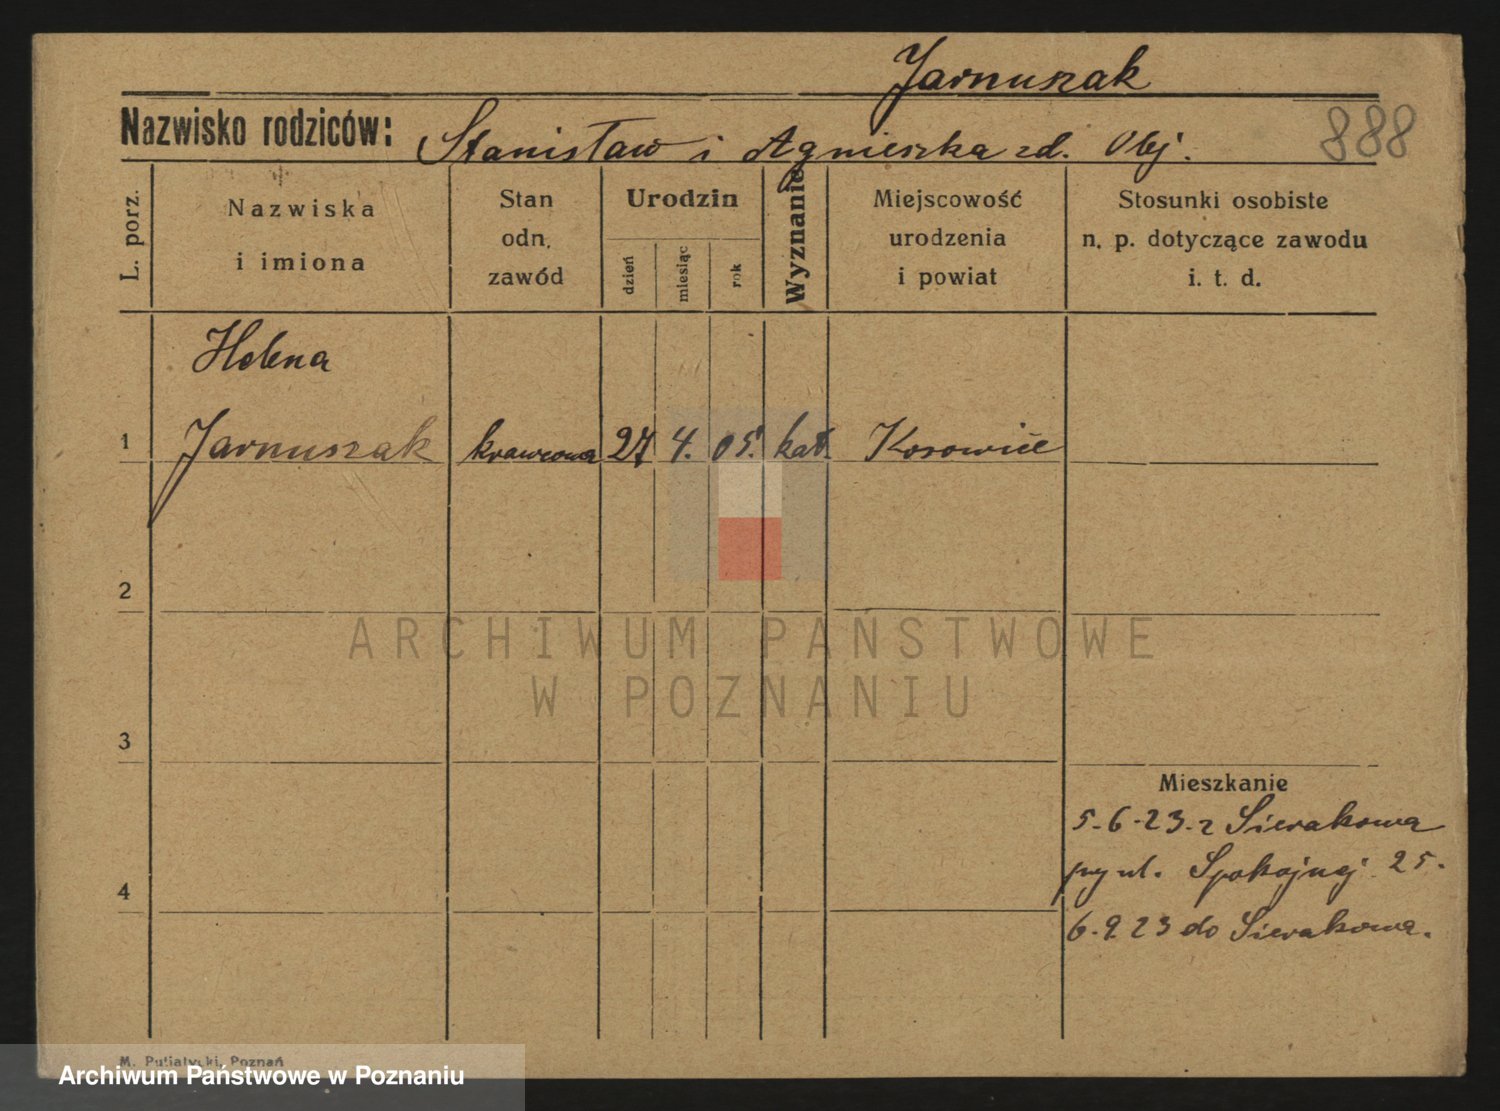 Jarnuszak
Nazwisko rodziców: Stanisław i Agnieszka zd. Obej.
888
L. porz.
Nazwiska
i imiona
Stan
odn.
zawód
Urodzin
dzień
miesiąc
rok
Wyznanie
Miejscowość
urodzenia
i powiat
Stosunki osobiste
n. p. dotyczące zawodu
i. t. d.
Helena
1 Jarnuszak krawcowa 27 4. 05. kat. Kosowice
2
3
4
Mieszkanie
5-6-23-z Sierakowa
py ul. Spokojnej 25.
6-9 23 do Sierakowa.
ARCHIWUM PAŃSTWOWE
W POZNANIU
M. Putiatycki, Poznań
Archiwum Państwowe w Poznaniu